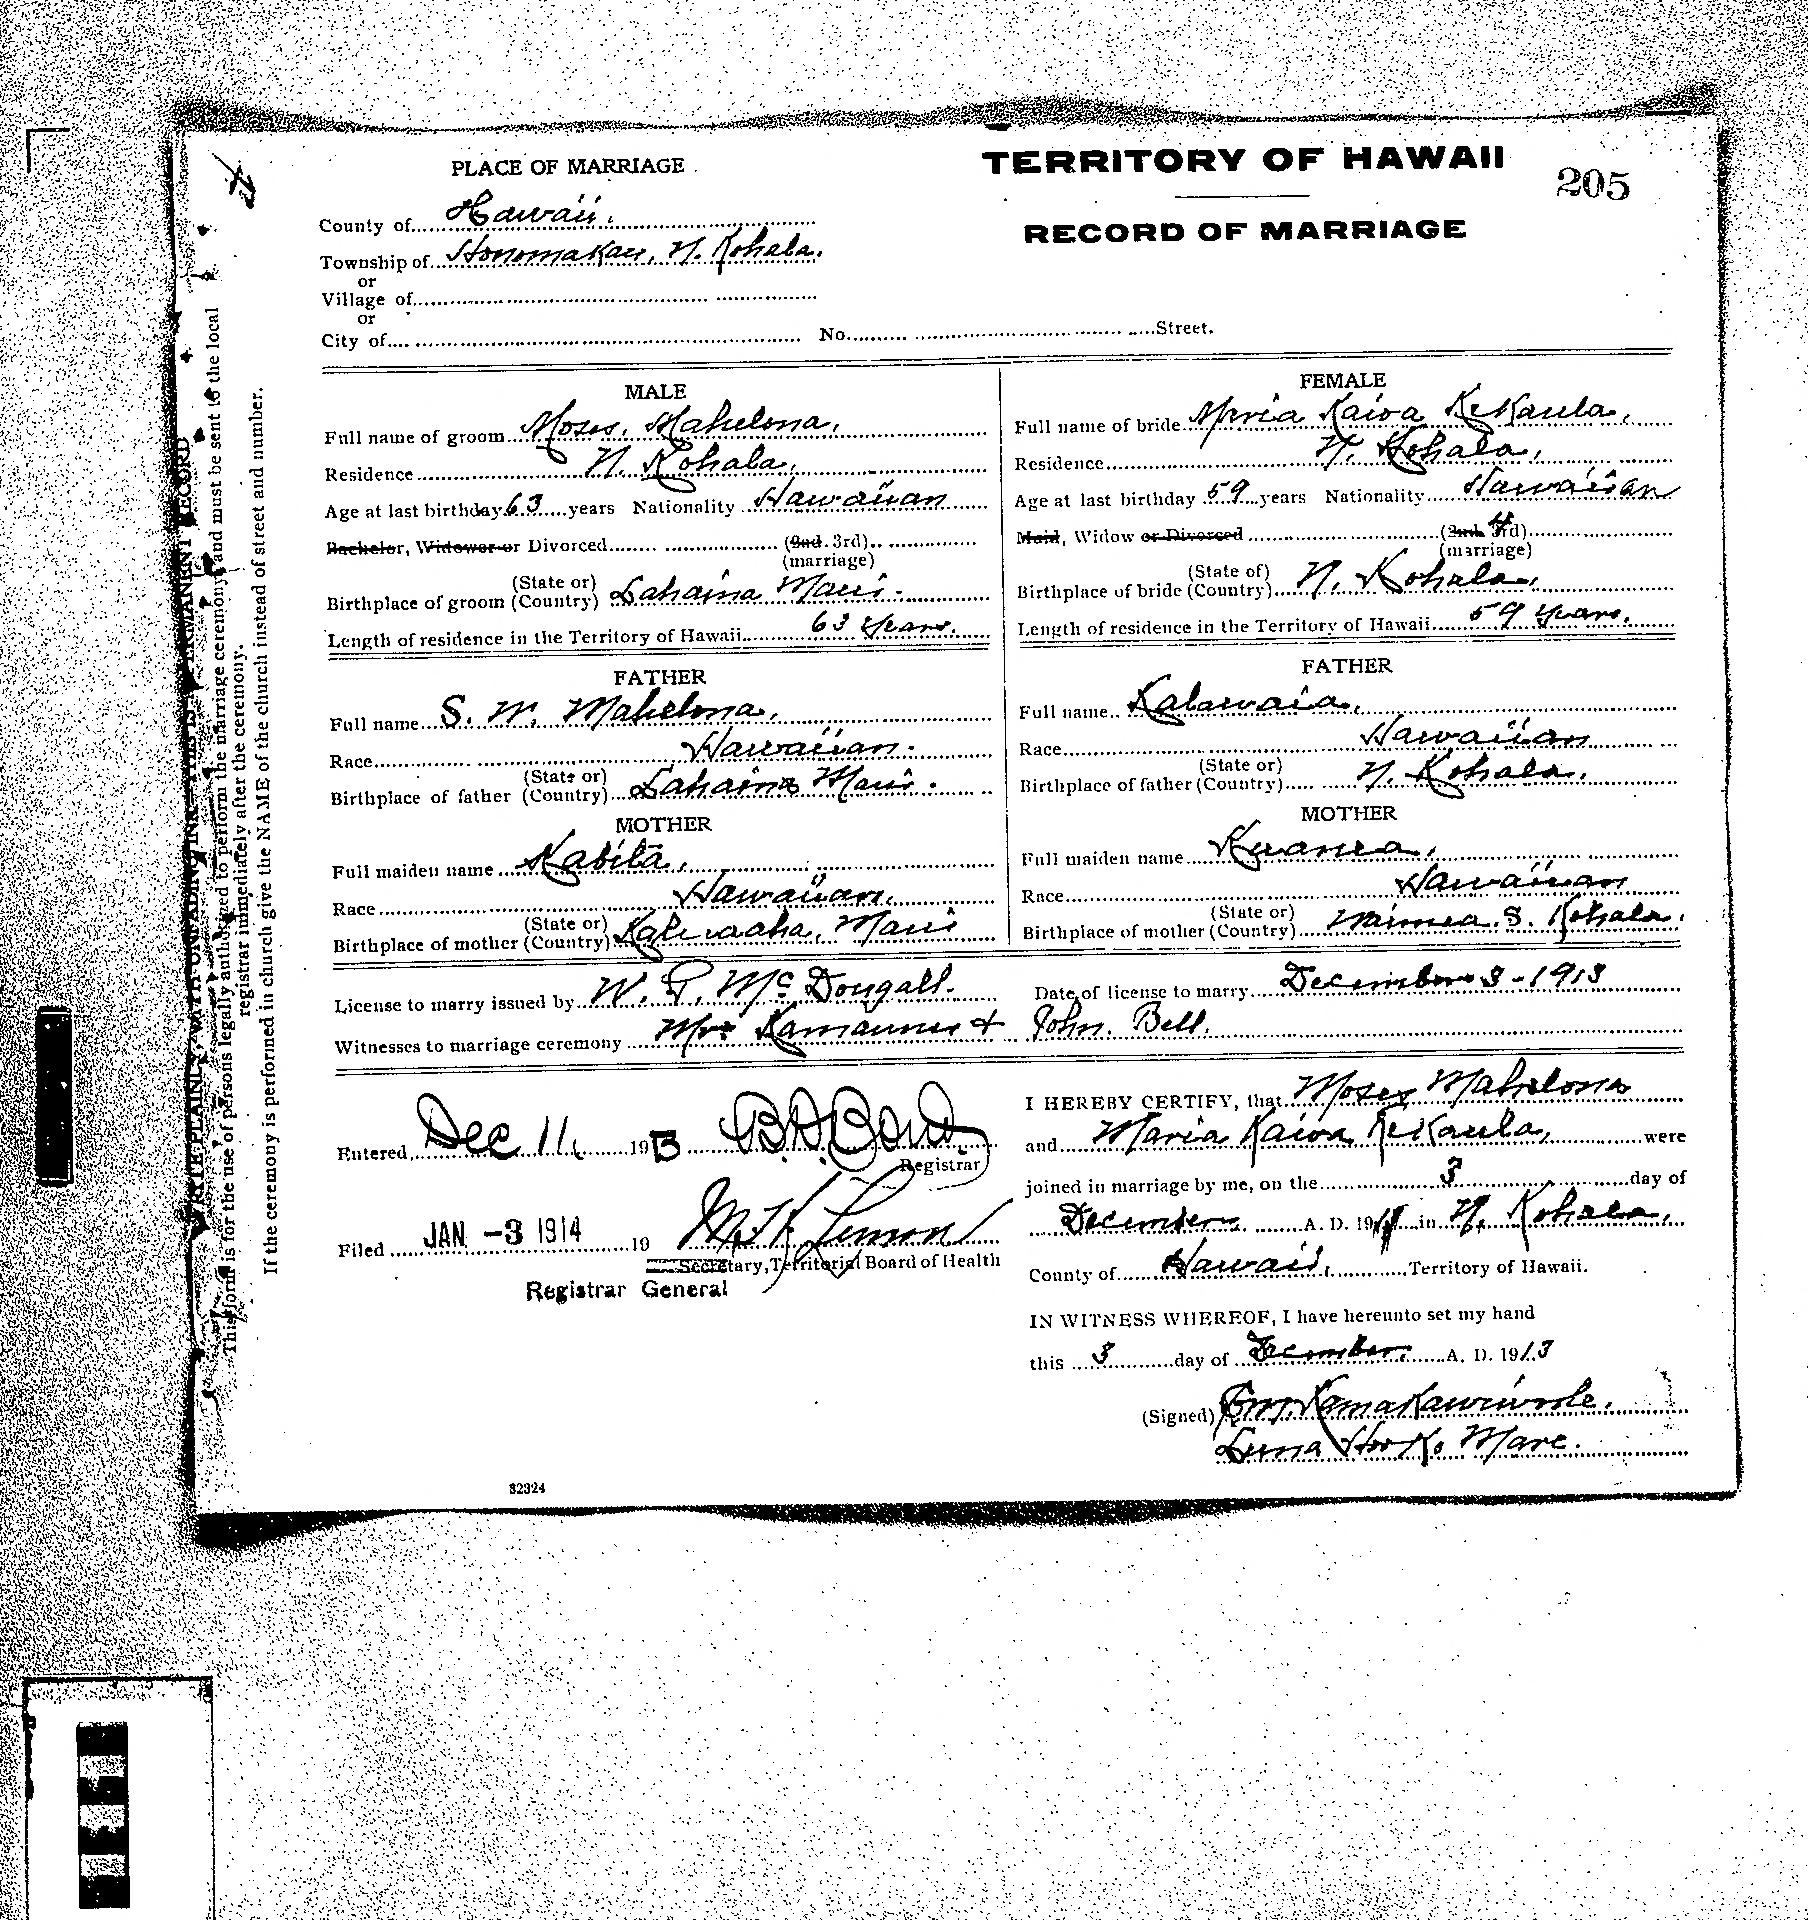 PLACE OF MARRIAGE
TERRITORY OF HAWAII
205
County of Hawaii.
Township of Honomakau, N. Kohala.
RECORD OF MARRIAGE
or
Village of
or
City of No. Street.
MALE
Full name of groom Moses, Mahelona,
Residence N. Kohala,
Age at last birthday 63 years Nationality Hawaiian
Bachelor, Widower or Divorced (2nd. 3rd)
(marriage)
(State or)
Birthplace of groom (Country) Lahaina Maui.
Length of residence in the Territory of Hawaii 63 Years.
FATHER
Full name S. W. Mahelona,
Race Hawaiian.
(State or)
Birthplace of father (Country) Lahaina Maui.
MOTHER
Full maiden name Kabita,
Race Hawaiian.
(State or)
Birthplace of mother (Country) Maui
FEMALE
Full name of bride Maria Kaiwa Kekaula,
Residence N. Kohala,
Age at last birthday 59 years Nationality Hawaiian
Maid, Widow or Divorced (2nd. 3rd) 4
(marriage)
(State of)
Birthplace of bride (Country) N. Kohala,
Length of residence in the Territory of Hawaii 59 Years.
FATHER
Full name Kalawaia,
Race Hawaiian
(State or)
Birthplace of father (Country) N. Kohala.
MOTHER
Full maiden name
Race Hawaiian
(State or)
Birthplace of mother (Country) Waimea. S. Kohala.
License to marry issued by W. P. McDougall. Date of license to marry December 3 - 1913
Witnesses to marriage ceremony & John. Bell.
Entered Dec 11, 1913 B. D. Bond
Registrar
Filed JAN -3 1914 19
Secretary, Territorial Board of Health
Registrar General
I HEREBY CERTIFY, that Moses Mahelona
and Maria Kaiwa Kekaula, were
joined in marriage by me, on the 3 day of
December A. D. 19 in N. Kohala,
County of Hawaii, Territory of Hawaii.
IN WITNESS WHEREOF, I have hereunto set my hand
this 3 day of December. A. D. 1913
(Signed) Kamakawiwoole.
Luna Hoo Mare.
32324
WRITE PLAINLY, WITH UNFADING INK—THIS IS A PERMANENT RECORD
This form is for the use of persons legally authorized to perform the marriage ceremony, and must be sent to the local
registrar immediately after the ceremony.
If the ceremony is performed in church give the NAME of the church instead of street and number.